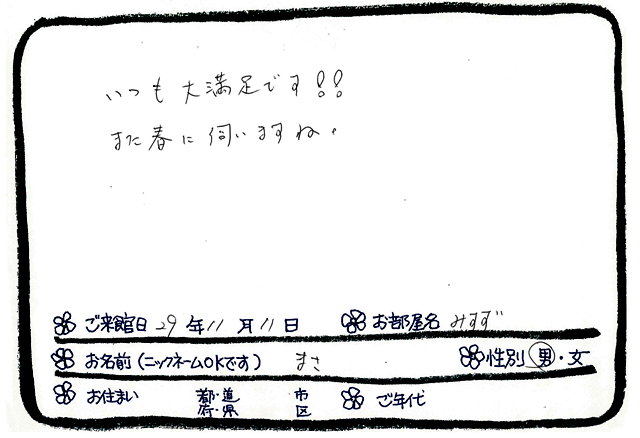 いつも大満足です!!
また春に伺いますね。
ご来館日 29年11月11日 お部屋名 みすず
お名前(ニックネームOKです) まさ 性別 男・女
お住まい 都・道 市 ご年代
府・県 区